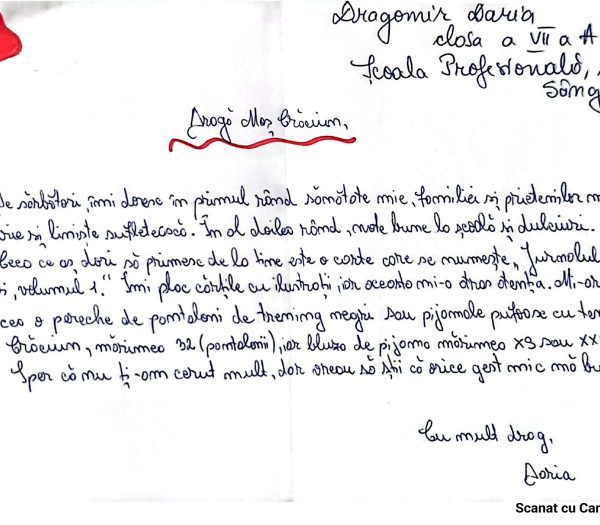 Dragomir Daria
clasa a VII a A
Școala Profesională,
Sâng
Dragă Moș Crăciun,
de sărbători, îmi doresc în primul rând sănătate mie, familiei și prietenilor m
rie și liniște sufletească. În al doilea rând, note bune la școală și dulciuri.
ceea ce aș dori să primesc de la tine este o carte care se numește „Jurnalul
i, volumul 1.” Îmi plac cărțile cu ilustrații, iar aceasta mi-a atras atenția. Mi-ar
cea o pereche de pantaloni de trening negri sau pijamale pufoase cu tem
Crăciun, mărimea 32 (pantalonii), iar bluza de pijama mărimea XS sau XX
Sper că nu ți-am cerut mult, dar vreau să știi că orice gest mic mă bu
Cu mult drag,
Daria
Scanat cu Cam